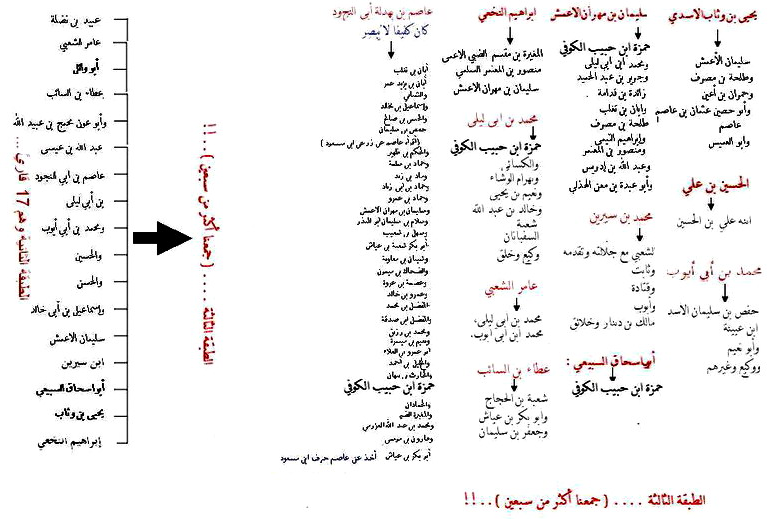 يحيى بن وثاب الاسدي
سليمان الأعمش
وطلحة بن مصرف
وحمران بن أعين
وأبو حصين عثمان بن عاصم
عاصم
وأبو العميس
الحسين بن علي
ابنه علي بن الحسين
محمد بن أبي أيوب
حفص بن سليمان الاسد
ابن عيينة
وأبو نعيم
ووكيع وغيرهم
سليمان بن مهران الأعمش
حمزة ابن حبيب الكوفي
ومحمد ابن ابي ليلى
وجرير بن عبد الحميد
زائدة بن قدامة
وابان بن تغلب
طلحة بن مصرف
وإبراهيم التيمي
ومنصور بن المعتمر
وعبد الله بن إدريس
وأبو عبيدة بن معن الهذلي
محمد بن سيرين
الشعبي مع جلالته وتقدمه
وثابت
وقتادة
وأيوب
مالك بن دينار وخلائق
أبو اسحاق السبيعي :
حمزة ابن حبيب الكوفي
ابراهيم النخعي
المغيرة بن مقسم الضبي الاعمى
منصور بن المعتمر السلمي
سليمان بن مهران الاعمش
محمد بن ابى ليلى
حمزة ابن حبيب الكوفي
والكسائي
وبهرام الوشاء
ونعيم بن يحيى
وخالد بن عبد الله
شعبة
السفيانان
وكيع وخلق
عامر الشعبي
محمد بن ابى ليلى،
محمد ابن ابى أيوب.
عطاء بن السائب
شعبة بن الحجاج
وابو بكر بن عياش
وجعفر بن سليمان
عاصم بن بهدلة أبى النجود
كان كفيفا لا يبصر
أبان بن تغلب
أبان بن يزيد
وإسماعيل بن مخالد
والحسن بن صالح
حفص بن سليمان
وحماد بن سلمة
وحماد بن زيد
وحماد بن أبى زياد
وحماد بن عمرو
وسليمان بن مهران الاعمش
وسلام بن سليمان ابو المنذر
وسهل بن شعيب
أبو بكر شعبة بن عياش
وشيبان بن معاوية
والضحاك بن ميمون
وعصمة بن عروة
وعمرو بن خالد
والمفضل بن محمد
والمفضل بن صدقة
ومحمد بن رزين
ونعيم بن ميسرة
أبو عمرو بن العلاء
والخليل بن أحمد
والحارث بن نبهان
حمزة ابن حبيب الكوفي
والحمادان
والمغيرة الضبي
ومحمد بن عبد الله العزرمي
وهارون بن موسى
أبو بكر بن عياش أخذ عن عاصم حرف ابى مسعود
الطبقة الثالثة .... ( جمعنا أكثر من سبعين )..!!
الطبقة الثالثة .... ( جمعنا أكثر من سبعين )..!!
عبيد بن نضلة
عامر الشعبي
أبو وائل
عطاء بن السائب
وأبو عون محمد بن عبيد الله
عبد الله بن عيسى
عاصم بن ابي النجود
بن أبي ليلى
ومحمد بن أبي أيوب
والحسين
والحسن
وإسماعيل بن أبى خالد
سليمان الاعمش
ابن سيرين
أبو اسحاق السبيعي
يحيى بن وثاب
إبراهيم النخعي
الطبقة الثانية وهم 17 قارئ ...